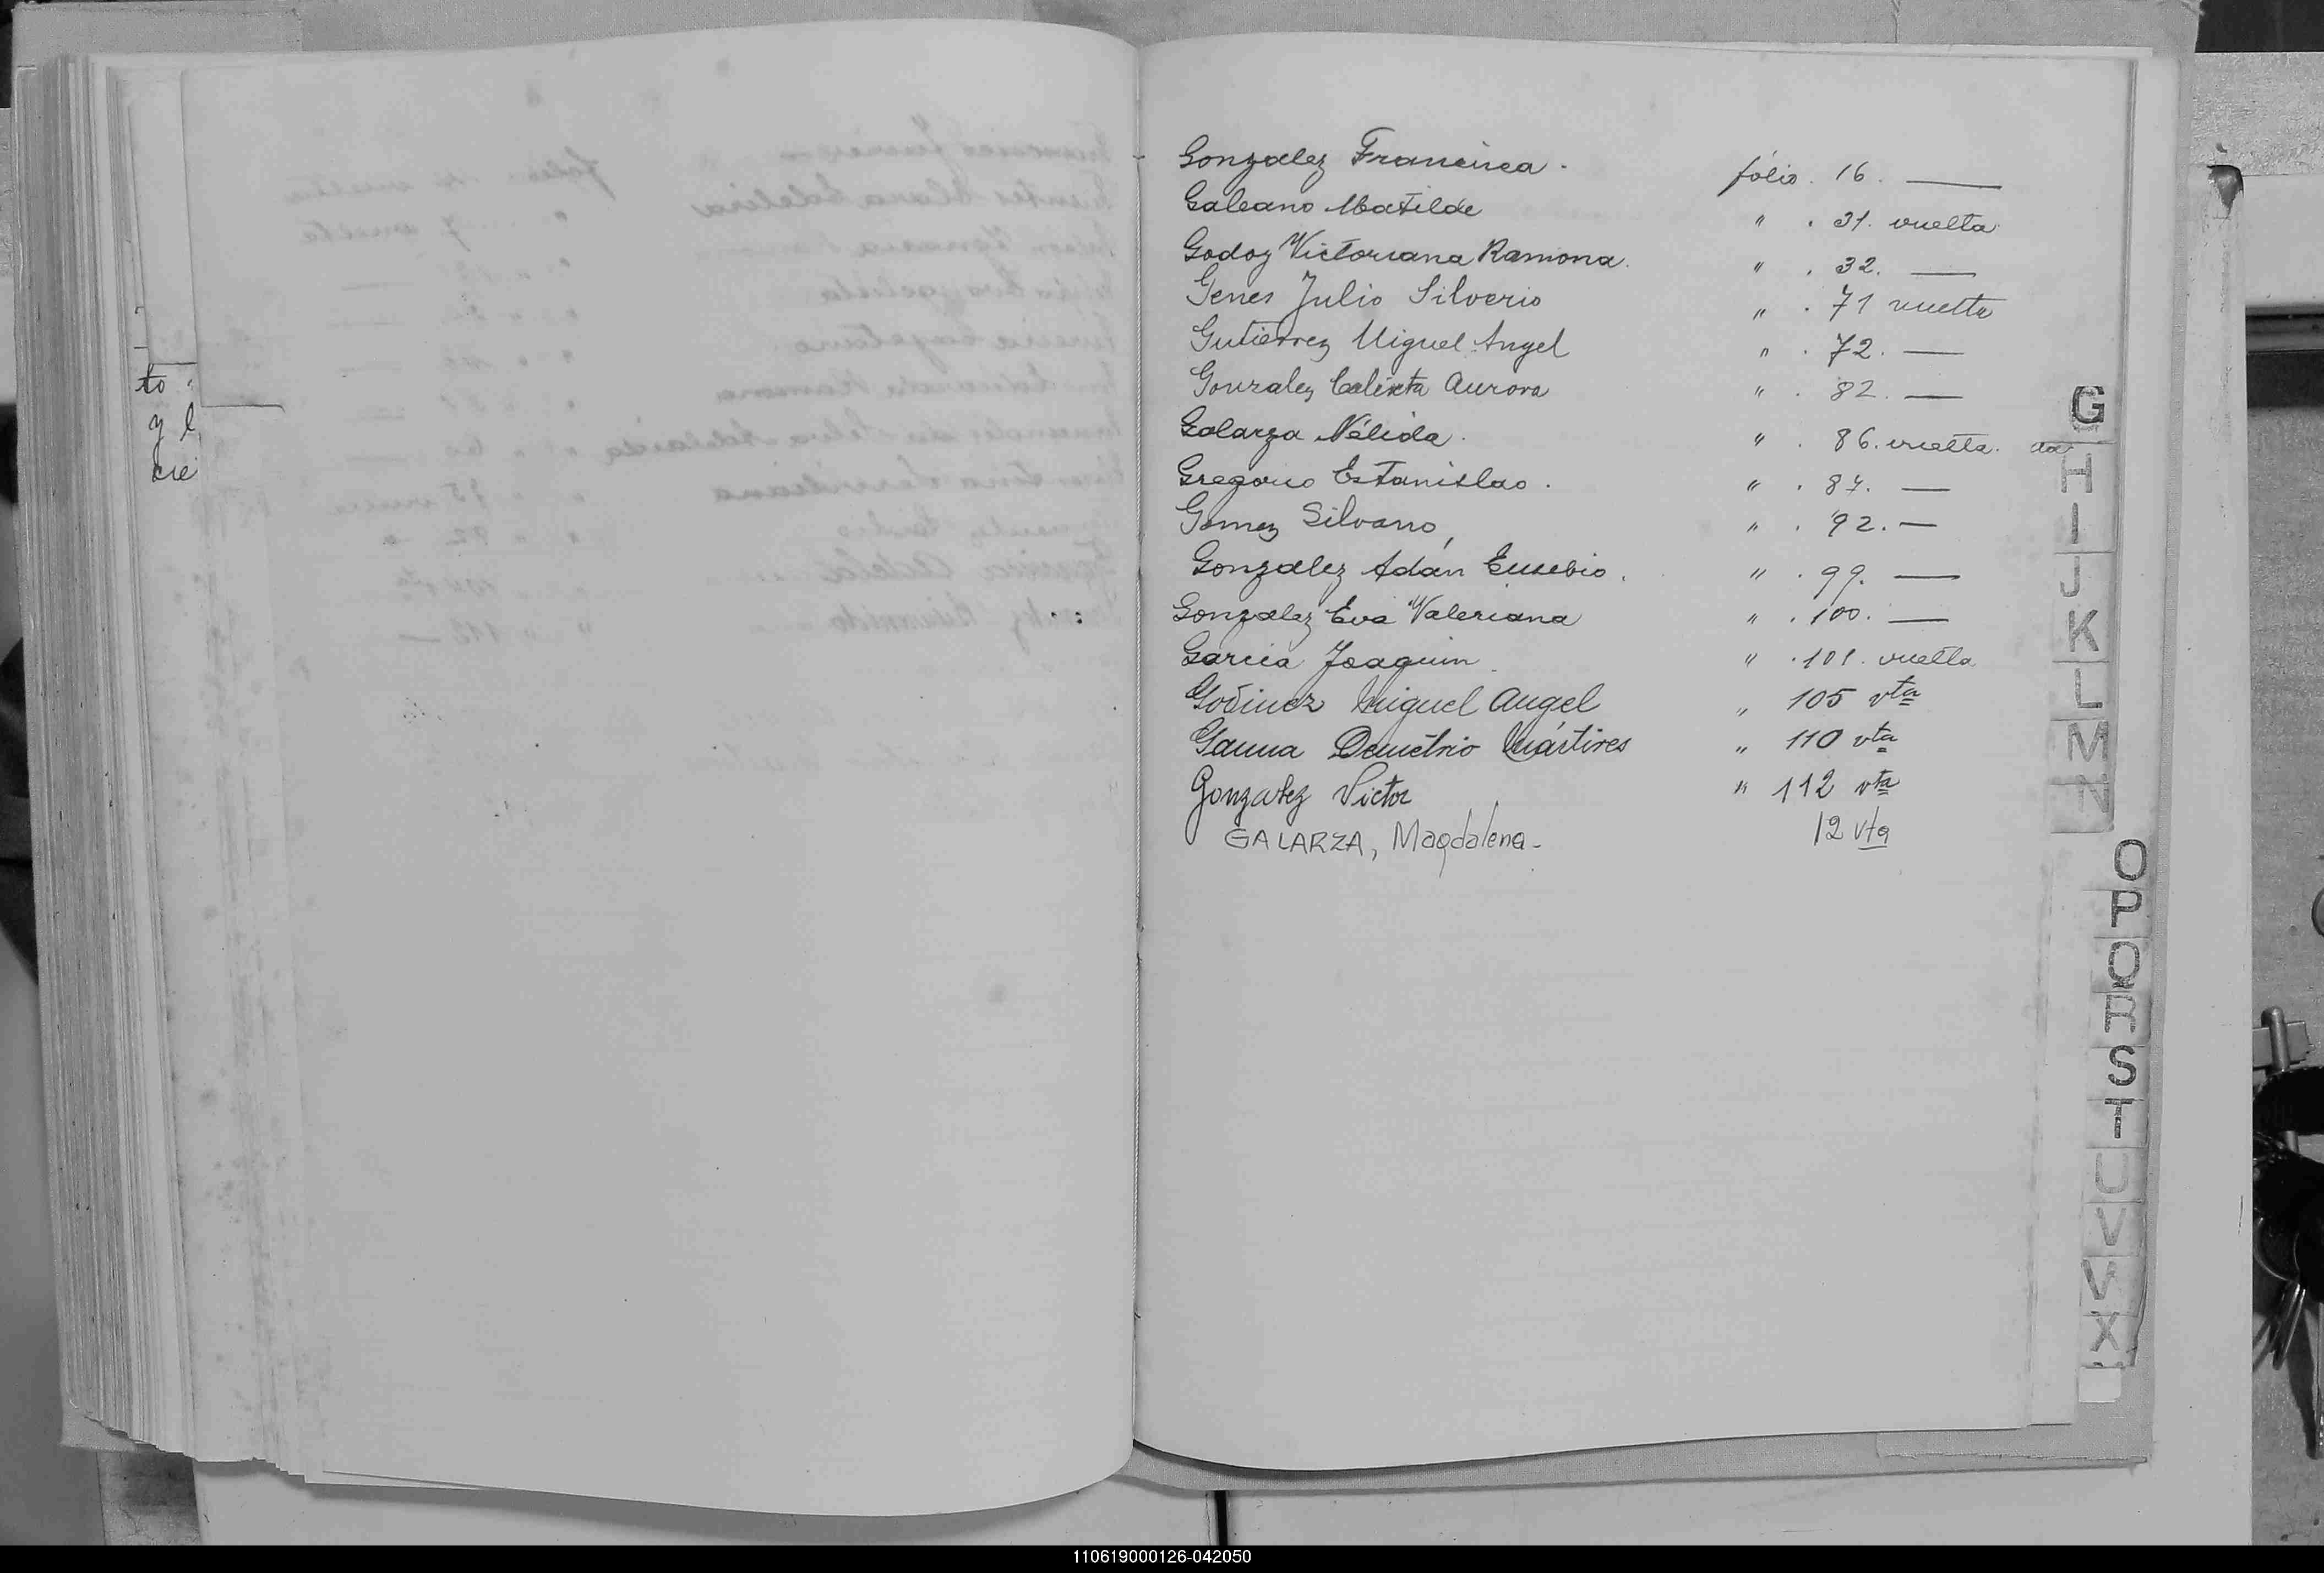 to
y l
cie
Gonzalez Francisca. folio. 16. —
Galeano Matilde " . 31. vuelta
Godoy Victoriana Ramona. " . 32. —
Genes Julio Silverio " . 71 vuelta
Gutierrez Miguel Angel " . 72. —
Gonzalez Calixta Aurora " . 82. —
Galarza Nélida. " . 86. vuelta.
Gregorio Estanislao. " . 87. —
Gomez Silvano, " . 92. —
Gonzalez Adán Eusebio. " . 99. —
Gonzalez Eva Valeriana " . 100. —
Garcia Joaquin. " . 101. vuelta
Godinez Miguel Angel " 105 vta
Gauna Demetrio Mártires " 110 vta
Gonzalez Victor " 112 vta
GALARZA, Magdalena - 12 vta
G
H
I
J
K
L
M
N
O
P
Q
R
S
T
U
V
V
X
110619000126-042050